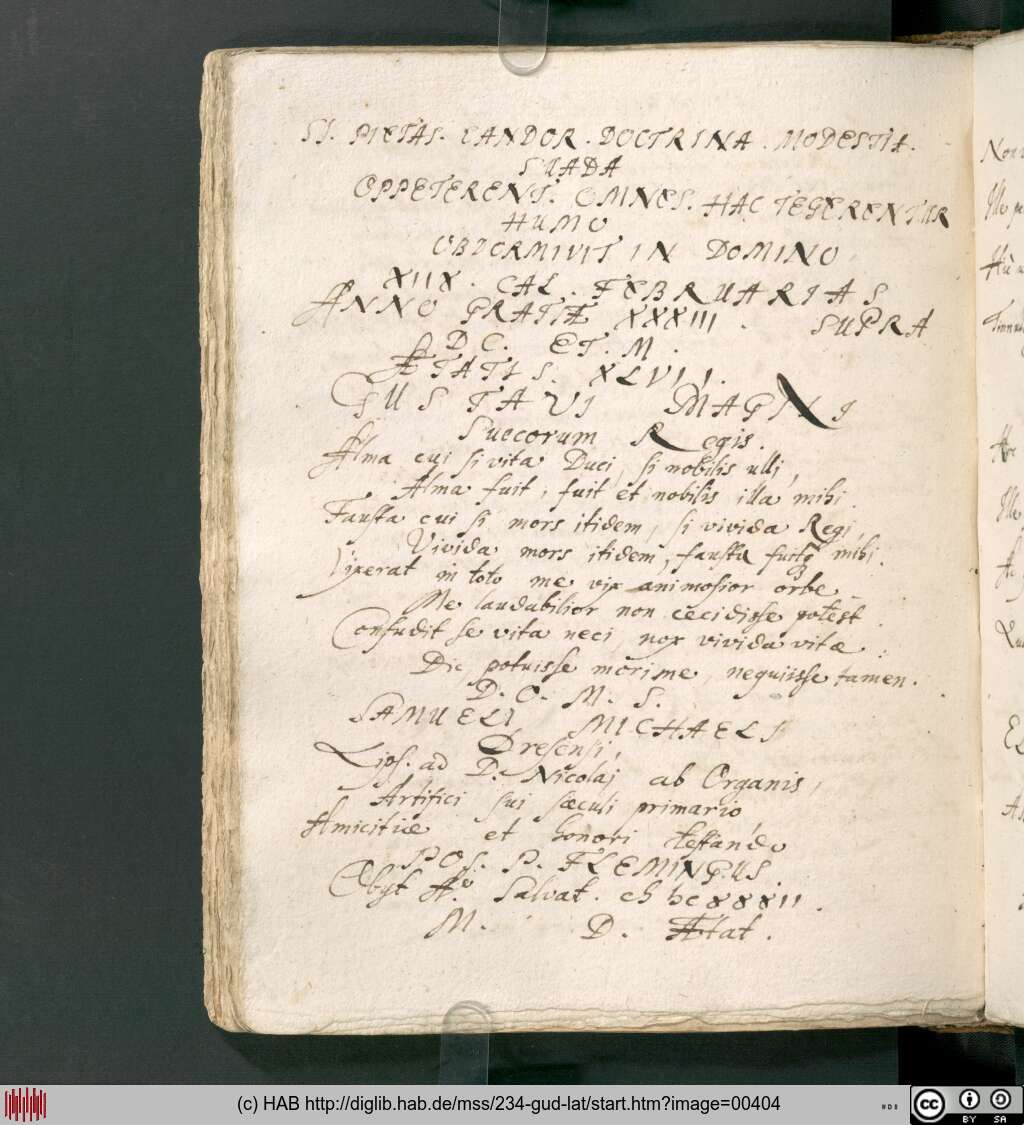 SI. PIETAS. CANDOR. DOCTRINA. MODESTIA.
SUADA
OPPETERENT. OMNES. HAC TEGERENTUR
HUMO
OBDORMIVIT IN DOMINO
XIIX. CAL. FEBRUARIAS
ANNO GRATIÆ XXXIII. SUPRA
DC. ET. M.
ÆTATIS. XLVII.
GUSTAVI MAGNI
Suecorum Regis.
Alma cui si vita Duci, si nobilis ulli,
Alma fuit, fuit et nobilis illa mihi.
Fausta cui si mors itidem, si vivida Regi,
Vivida mors itidem, fausta mihi.
Vixerat in toto me vix animosior orbe
Me laudabilior non cecidisse potest.
Confudit se vita neci, nox vivida vitæ:
Dic potuisse mori me, nequiisse tamen.
D. O. M. S.
SAMUELI MICHAELI
Dresensi,
Lips. ad D. Nicolaj ab Organis,
Artifici sui sæculi primario,
Amicitiæ et honori testando
POS. P. FLEMINGUS.
Obyt Aº. Salvat.
M. D. Ætat.
Non
Ille
(c) HAB http://diglib.hab.de/mss/234-gud-lat/start.htm?image=00404
cc BY SA